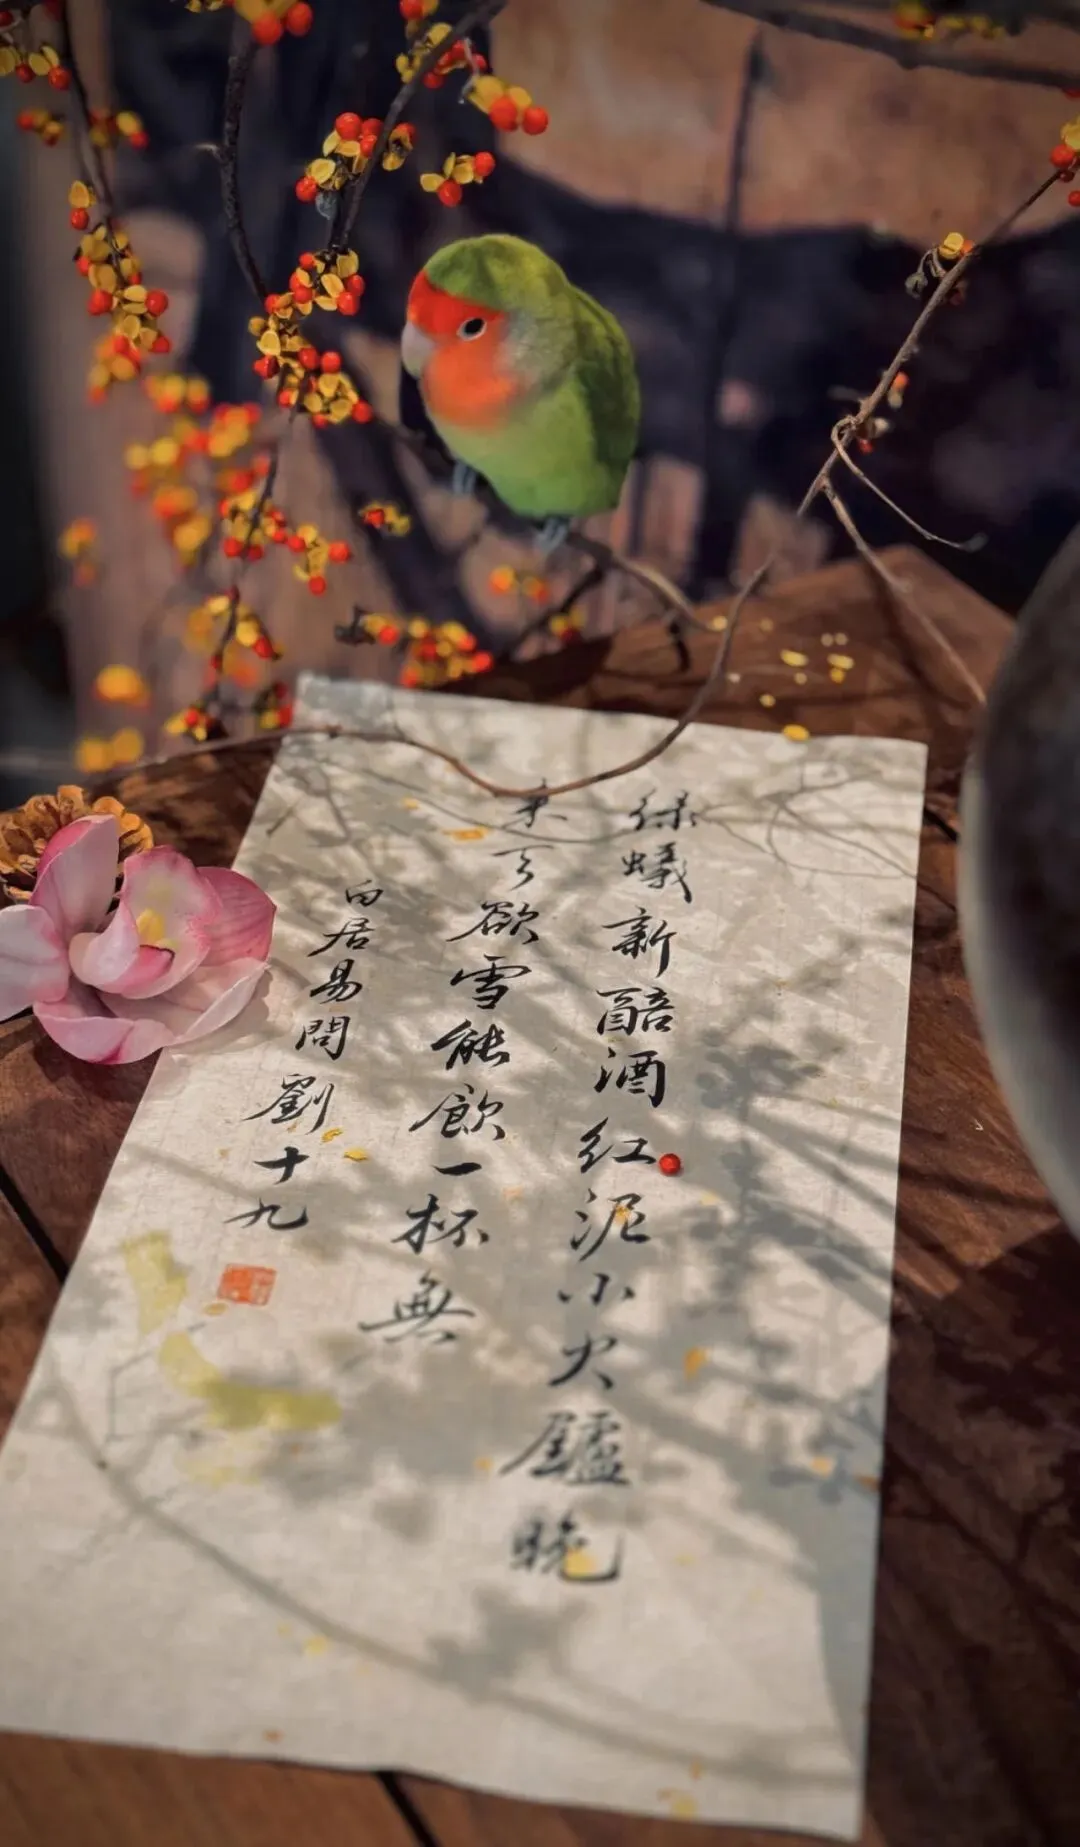 綠蟻新醅酒紅泥小火鑪晚
來天欲雪能飲一杯無
白居易問劉十九